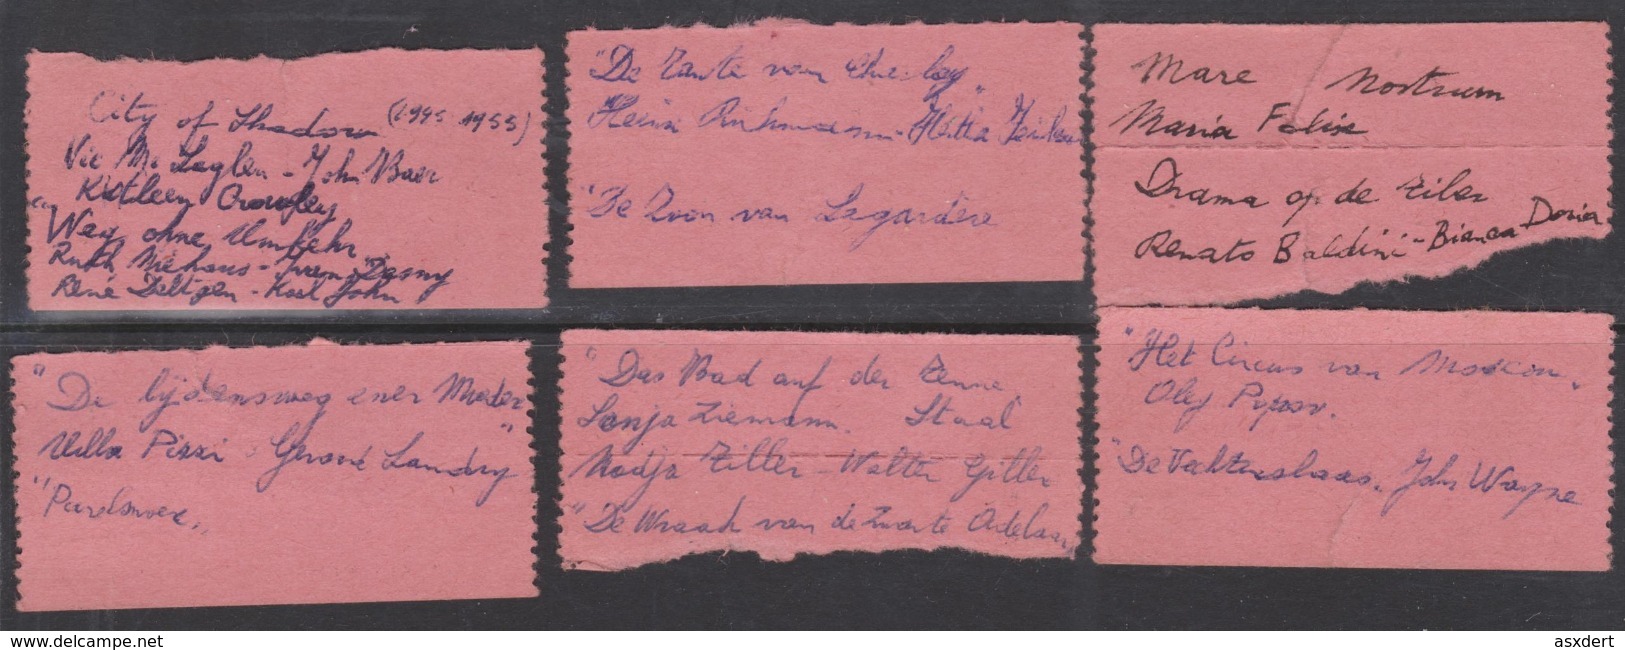 City of Shadow (1945 1955)
Vic Mc Laglen - John Baer
Kathleen Crowley
"Weg ohne Umkehr
Ruth Niehaus - Ivan Desny
René Deltgen - Karl John
"De Tante van Charley"
Heinz Ruhmann - Hetta
"De Zoon van Lagardère
Mare Nostrum
Maria Felix
Drama op de Tiber
Renato Baldini - Bianca Doria
"De lijdensweg ener Moeder"
Villa Pizzi Gerard Landry
"Parelsnoer"
"Das Bad auf der Tenne"
Sonja Ziemann. Staal
Nadja Tiller - Walter Giller
"De Wraak van de Zwarte Adelaar
"Het Circus van Moscou.
Oleg Popov.
"De John Wayne
www.delcampe.net
asxdert